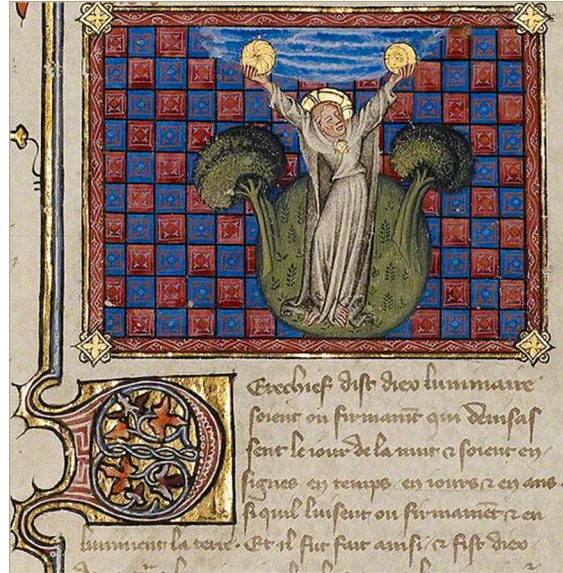 Derechief dist diex luminaire
soient ou firmament qui devisas
sent le iour de la nuit & soient en
signes en temps en iours & en ans.
si quil luisent ou firmament & en
luminent la terre. Et il fut fait ainsi. & fist diex